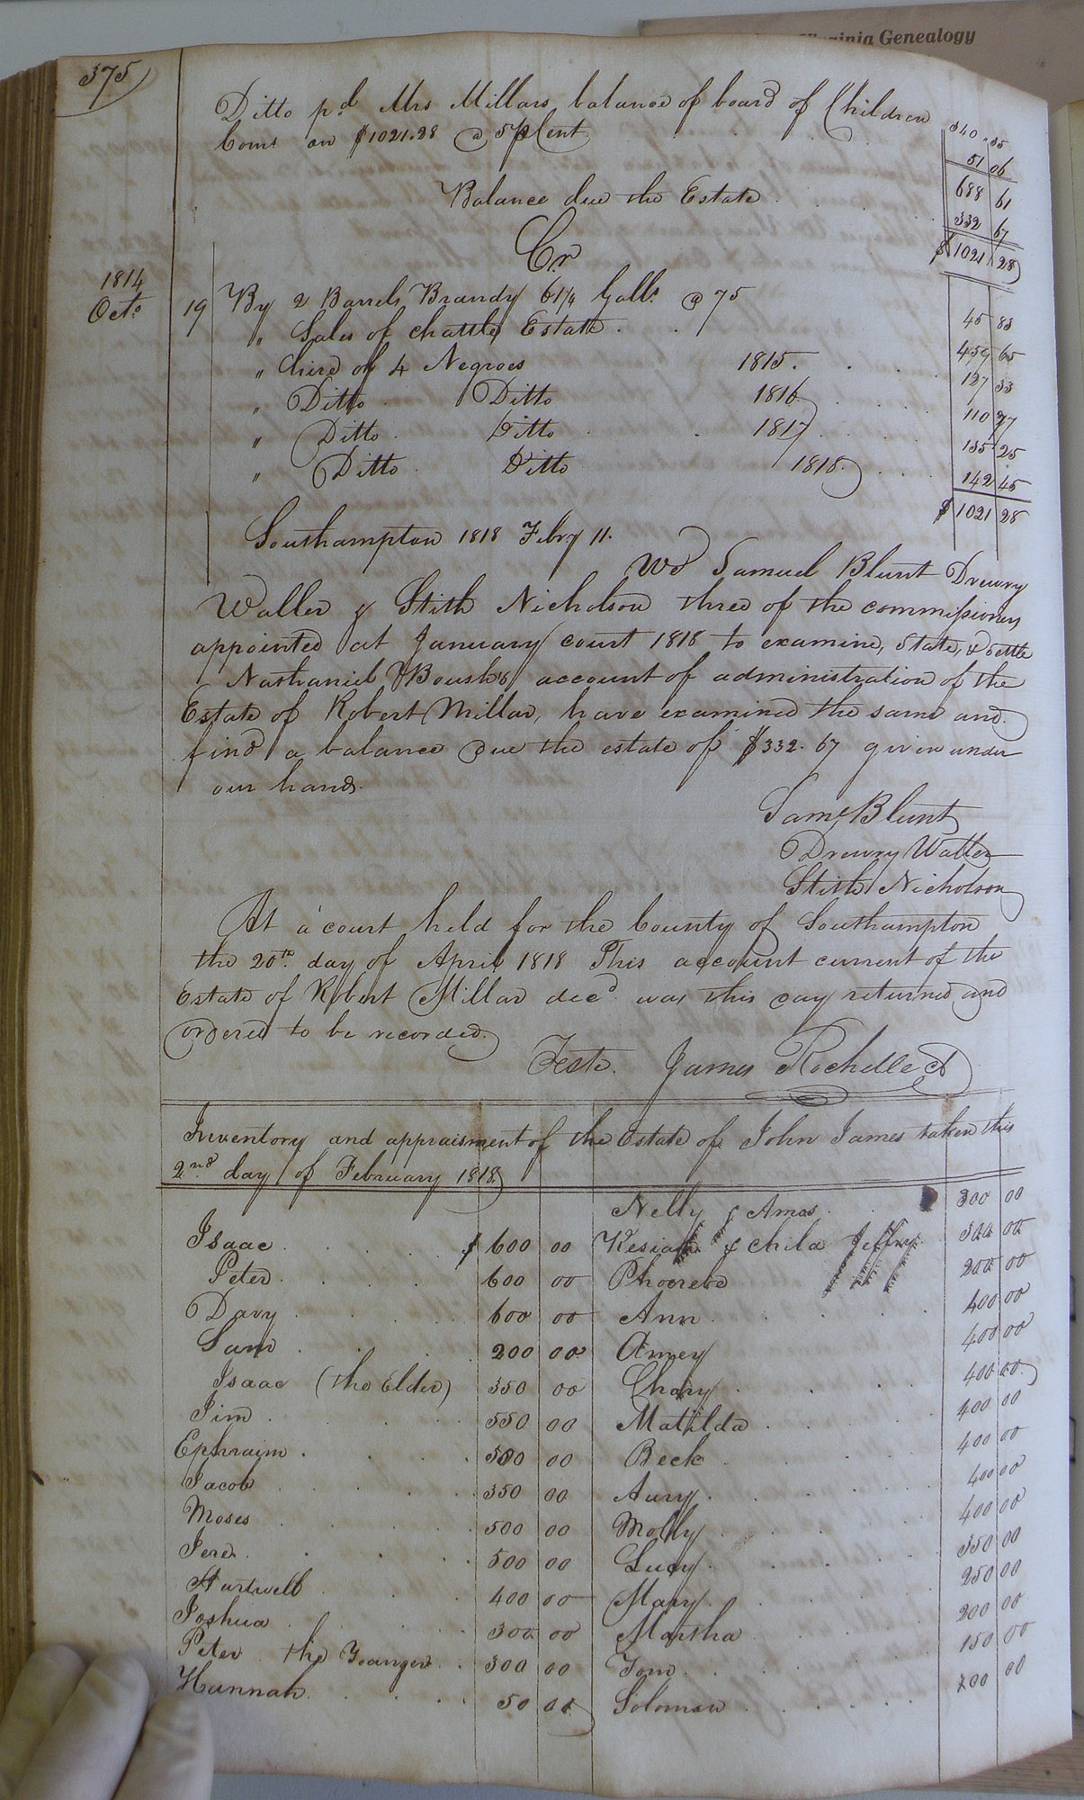 Virginia Genealogy
375
Ditto pd Mrs Millars balance of board of Children 340.35
Coms on $1021.28 @ 5 p Cent 51 06
688 61
Balance due the Estate 332 67
$1021 28
Cr
1814
Octo 19 By 2 Barrels Brandy 61 1/4 Galls @ 75 45 83
" Sales of chattle Estate 459 65
" hire of 4 Negroes 1815. 127 33
" Ditto Ditto 1816 110 77
" Ditto Ditto 1817 135 25
" Ditto Ditto 1818. 142 45
$1021 28
Southampton 1818 Febry 11.
We Samuel Blunt Drewry
Waller & Stith Nicholson three of the commissioners
appointed at January court 1818 to examine, State, & Settle
Nathaniel Boush's account of administration of the
Estate of Robert Millar, have examined the same and
find a balance due the estate of $332.67 given under
our hands.
Saml Blunt
Drewry Waller
Stith Nicholson
At a court held for the County of Southampton
the 20th day of April 1818 This account current of the
Estate of Robert Millar decd was this day returned and
ordered to be recorded.
Teste. James Rochelle
Inventory and appraisment of the Estate of John James taken this
2nd day of February 1818
Nelly & Amos 300 00
Isaac $ 600 00 Kesiah & child Jeffry 00
Peter 600 00 Phoerebe 200 00
Davy 600 00 Ann 400 00
Sam 200 00 Amey 400 00
Isaac (the Elder) 350 00 Chary 400 00
Jim 550 00 Matilda 400 00
Ephraim 00 Beck 400 00
Jacob 350 00 Aury 400 00
Moses 500 00 Molly 400 00
Jere 500 00 Lucy 350 00
Hartwell 400 00 Mary 250 00
Joshua 300 00 Martha 200 00
Peter the Younger 300 00 Tom 150 00
Hannah 50 00 Solomon 200 00